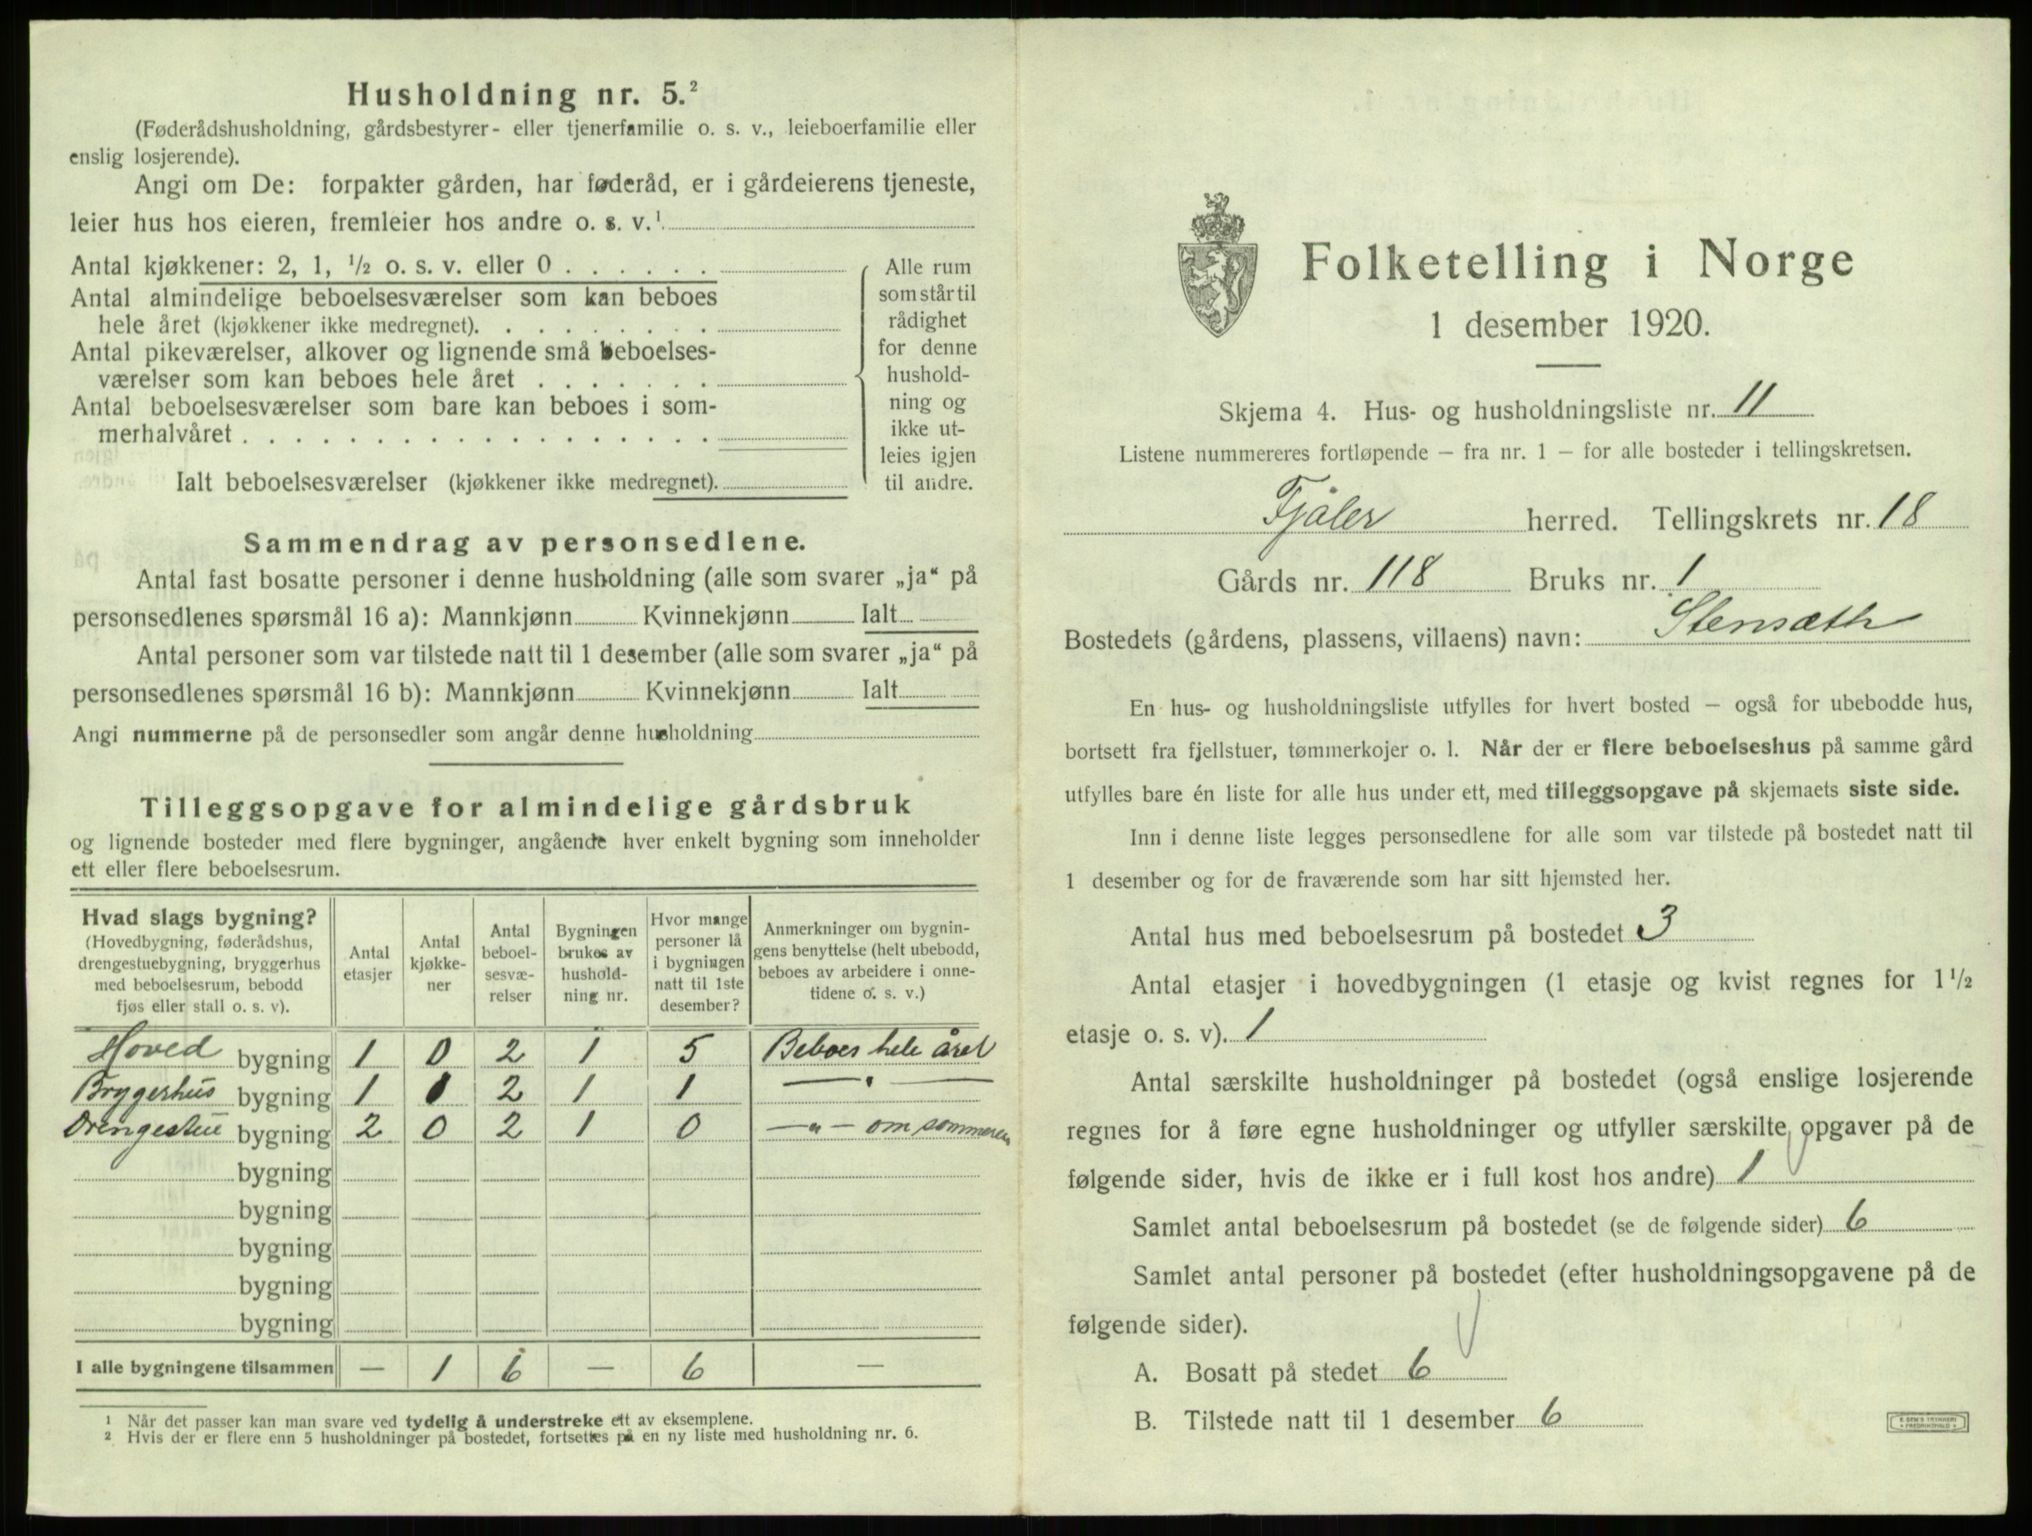 Husholdning nr. 5.²
(Føderådshusholdning, gårdsbestyrer- eller tjenerfamilie o. s. v., leieboerfamilie eller
enslig losjerende).
Angi om De: forpakter gården, har føderåd, er i gårdeierens tjeneste,
leier hus hos eieren, fremleier hos andre o. s. v.¹
Antal kjøkkener: 2, 1, ½ o. s. v. eller 0 . . . . . .
Antal almindelige beboelsesværelser som kan beboes
hele året (kjøkkener ikke medregnet). . . . . . . . .
Antal pikeværelser, alkover og lignende små beboelses-
værelser som kan beboes hele året . . . . . . .
Antal beboelsesværelser som bare kan beboes i som-
merhalvåret . . . . . . . . . . . . . . . . . .
Ialt beboelsesværelser (kjøkkener ikke medregnet).
Alle rum
som står til
rådighet
for denne
hushold-
ning og
ikke ut-
leies igjen
til andre.
Sammendrag av personsedlene.
Antal fast bosatte personer i denne husholdning (alle som svarer „ja“ på
personsedlenes spørsmål 16 a): Mannkjønn Kvinnekjønn Ialt
Antal personer som var tilstede natt til 1 desember (alle som svarer „ja“ på
personsedlenes spørsmål 16 b): Mannkjønn Kvinnekjønn Ialt
Angi nummerne på de personsedler som angår denne husholdning
Tilleggsopgave for almindelige gårdsbruk
og lignende bosteder med flere bygninger, angående hver enkelt bygning som inneholder
ett eller flere beboelsesrum.
Hvad slags bygning?
(Hovedbygning, føderådshus,
drengestuebygning, bryggerhus
med beboelsesrum, bebodd
fjøs eller stall o. s. v).
Antal
etasjer
Antal
kjøkke-
ner
Antal
beboel-
sesvæ-
relser
Bygningen
brukes av
hushold-
ning nr.
Hvor mange
personer lå
i bygningen
natt til 1ste
desember?
Anmerkninger om bygnin-
gens benyttelse (helt ubebodd,
beboes av arbeidere i onne-
tidene o. s. v.)
Hoved bygning 1 0 2 1 5 Beboes hele året
Bryggerhus bygning 1 1 2 1 1 — " —
Drengestue bygning 2 0 2 1 0 — " — om sommeren
bygning
bygning
bygning
bygning
bygning
I alle bygningene tilsammen — 1 6 — 6 —
¹ Når det passer kan man svare ved tydelig å understreke ett av eksemplene.
² Hvis der er flere enn 5 husholdninger på bostedet, fortsettes på en ny liste med husholdning nr. 6.
Folketelling i Norge
1 desember 1920.
Skjema 4. Hus- og husholdningsliste nr. 11
Listene nummereres fortløpende — fra nr. 1 — for alle bosteder i tellingskretsen.
Fjaler herred. Tellingskrets nr. 18
Gårds nr. 118 Bruks nr. 1
Bostedets (gårdens, plassens, villaens) navn: Stensæth
En hus- og husholdningsliste utfylles for hvert bosted — også for ubebodde hus,
bortsett fra fjellstuer, tømmerkojer o. l. Når der er flere beboelseshus på samme gård
utfylles bare én liste for alle hus under ett, med tilleggsopgave på skjemaets siste side.
Inn i denne liste legges personsedlene for alle som var tilstede på bostedet natt til
1 desember og for de fraværende som har sitt hjemsted her.
Antal hus med beboelsesrum på bostedet 3
Antal etasjer i hovedbygningen (1 etasje og kvist regnes for 1½
etasje o. s. v). 1
Antal særskilte husholdninger på bostedet (også enslige losjerende
regnes for å føre egne husholdninger og utfyller særskilte opgaver på de
følgende sider, hvis de ikke er i full kost hos andre) 1
Samlet antal beboelsesrum på bostedet (se de følgende sider) 6
Samlet antal personer på bostedet (efter husholdningsopgavene på de
følgende sider).
A. Bosatt på stedet 6
B. Tilstede natt til 1 desember 6